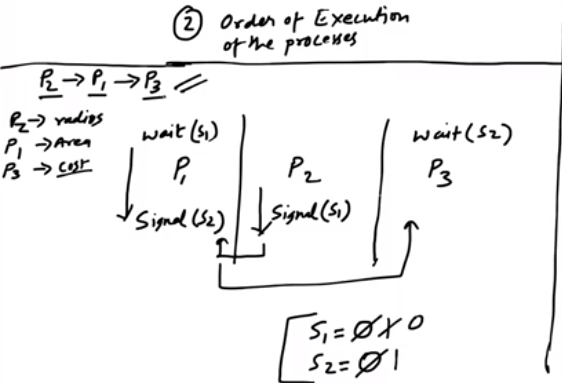 ② Order of Execution
of the processes
P2 → P1 → P3
P2 → radius
P1 → Area
P3 → Cost
wait(S1)
P1
Signal(S2)
P2
Signal(S1)
wait(S2)
P3
S1 = 0 1 0
S2 = 0 1